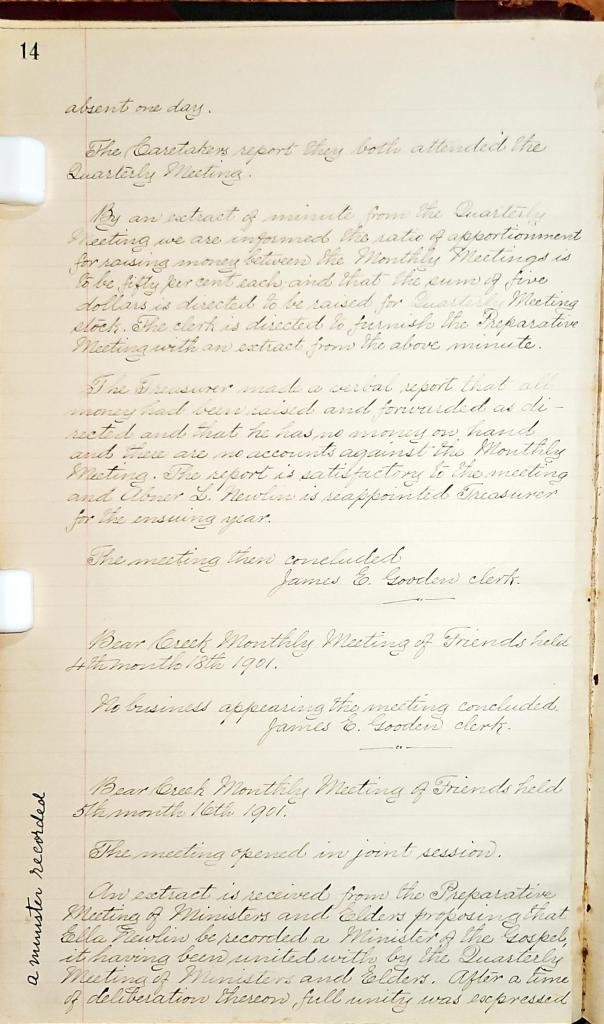 14
absent one day.
The Caretakers report they both attended the
Quarterly Meeting.
By an extract of minute from the Quarterly
Meeting we are informed the ratio of apportionment
for raising money between the Monthly Meetings is
to be fifty per cent each, and that the sum of five
dollars is directed to be raised for Quarterly Meeting
stock. The clerk is directed to furnish the Preparative
Meeting with an extract from the above minute.
The Treasurer made a verbal report that all
money had been raised and forwarded as di-
rected and that he has no money on hand
and there are no accounts against the Monthly
Meeting. The report is satisfactory to the meeting
and Abner L. Newlin is reappointed Treasurer
for the ensuing year.
The meeting then concluded
James E. Gooden clerk.
Bear Creek Monthly Meeting of Friends held
4th month 18th 1901.
No business appearing the meeting concluded.
James E. Gooden clerk.
Bear Creek Monthly Meeting of Friends held
5th month 16th 1901.
The meeting opened in joint session.
An extract is received from the Preparative
Meeting of Ministers and Elders proposing that
Ella Newlin be recorded a Minister of the Gospel,
it having been united with by the Quarterly
Meeting of Ministers and Elders. After a time
of deliberation thereon, full unity was expressed
a minister recorded